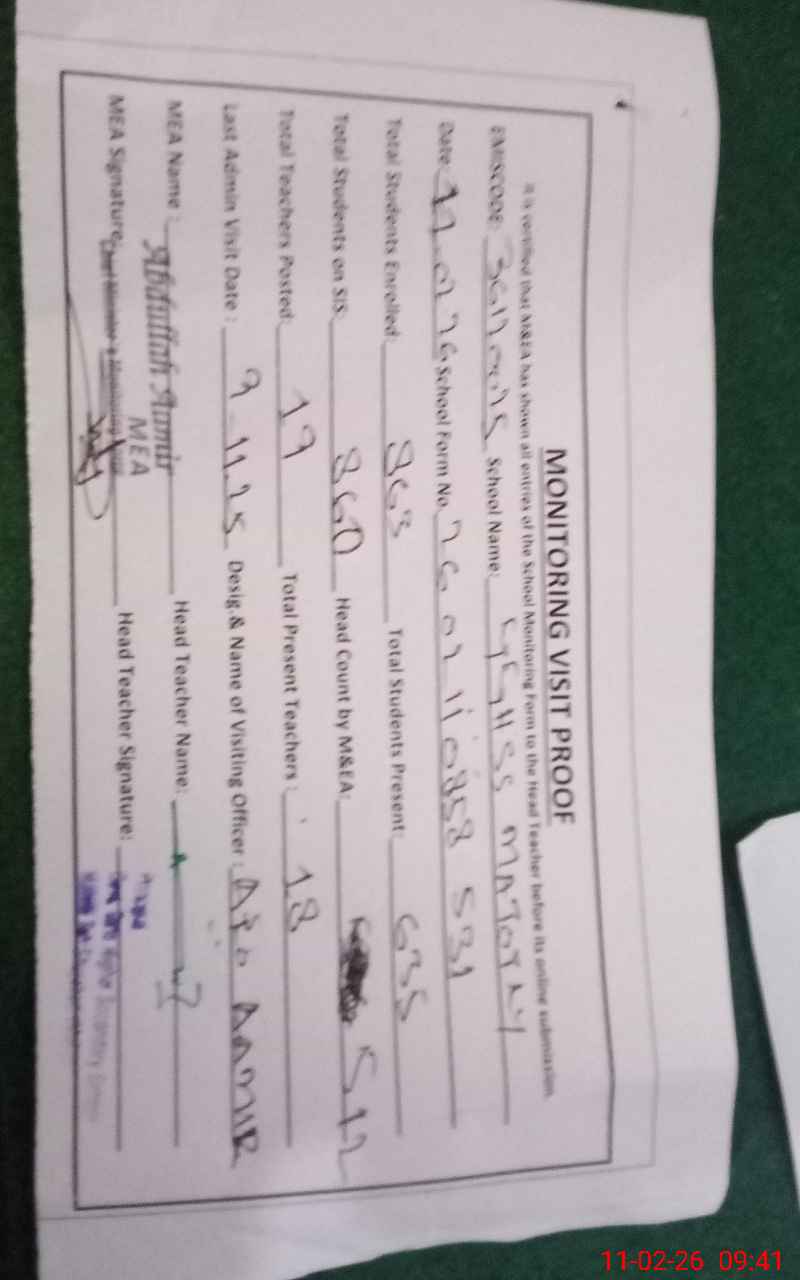 MONITORING VISIT PROOF
It is certified that M&EA has shown all entries of the School Monitoring Form to the Head Teacher before its online submission.
EMISCODE: School Name: GGHSS
Date: School Form No.
Total Students Enrolled: 863 Total Students Present: 635
Total Students on SIS: 860 Head Count by M&EA: 512
Total Teachers Posted: 19 Total Present Teachers : 18
Last Admin Visit Date : 9-11-25 Desig.& Name of Visiting Officer : AAMIR
MEA Name : Abdullah Aamir Head Teacher Name:
MEA
MEA Signature: Head Teacher Signature:
Principal
11-02-26 09:41